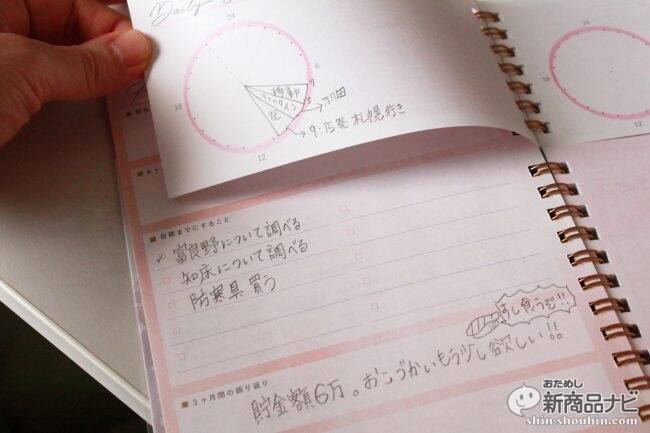 Daily
24
6
7
8
12
18
移動
チェックイン
発
羽田
9:15発 札幌行き
■ 目標までにすること
✓ 富良野について調べる
知床について調べる
防寒具買う
すし食うぞ!!
■ 3ヶ月間の振り返り
貯金額6万。おこづかいもう少し欲しい!!
おためし
新商品ナビ
shin-shouhin.com